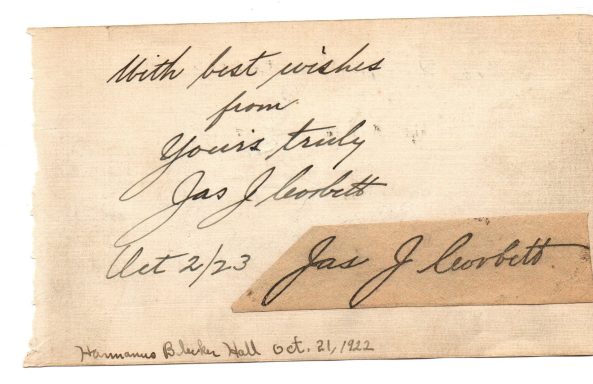 With best wishes
from
Yours truly
Jas J Corbett
Oct 2/23
Jas J Corbett
Harmanus Bleecker Hall Oct. 21, 1922